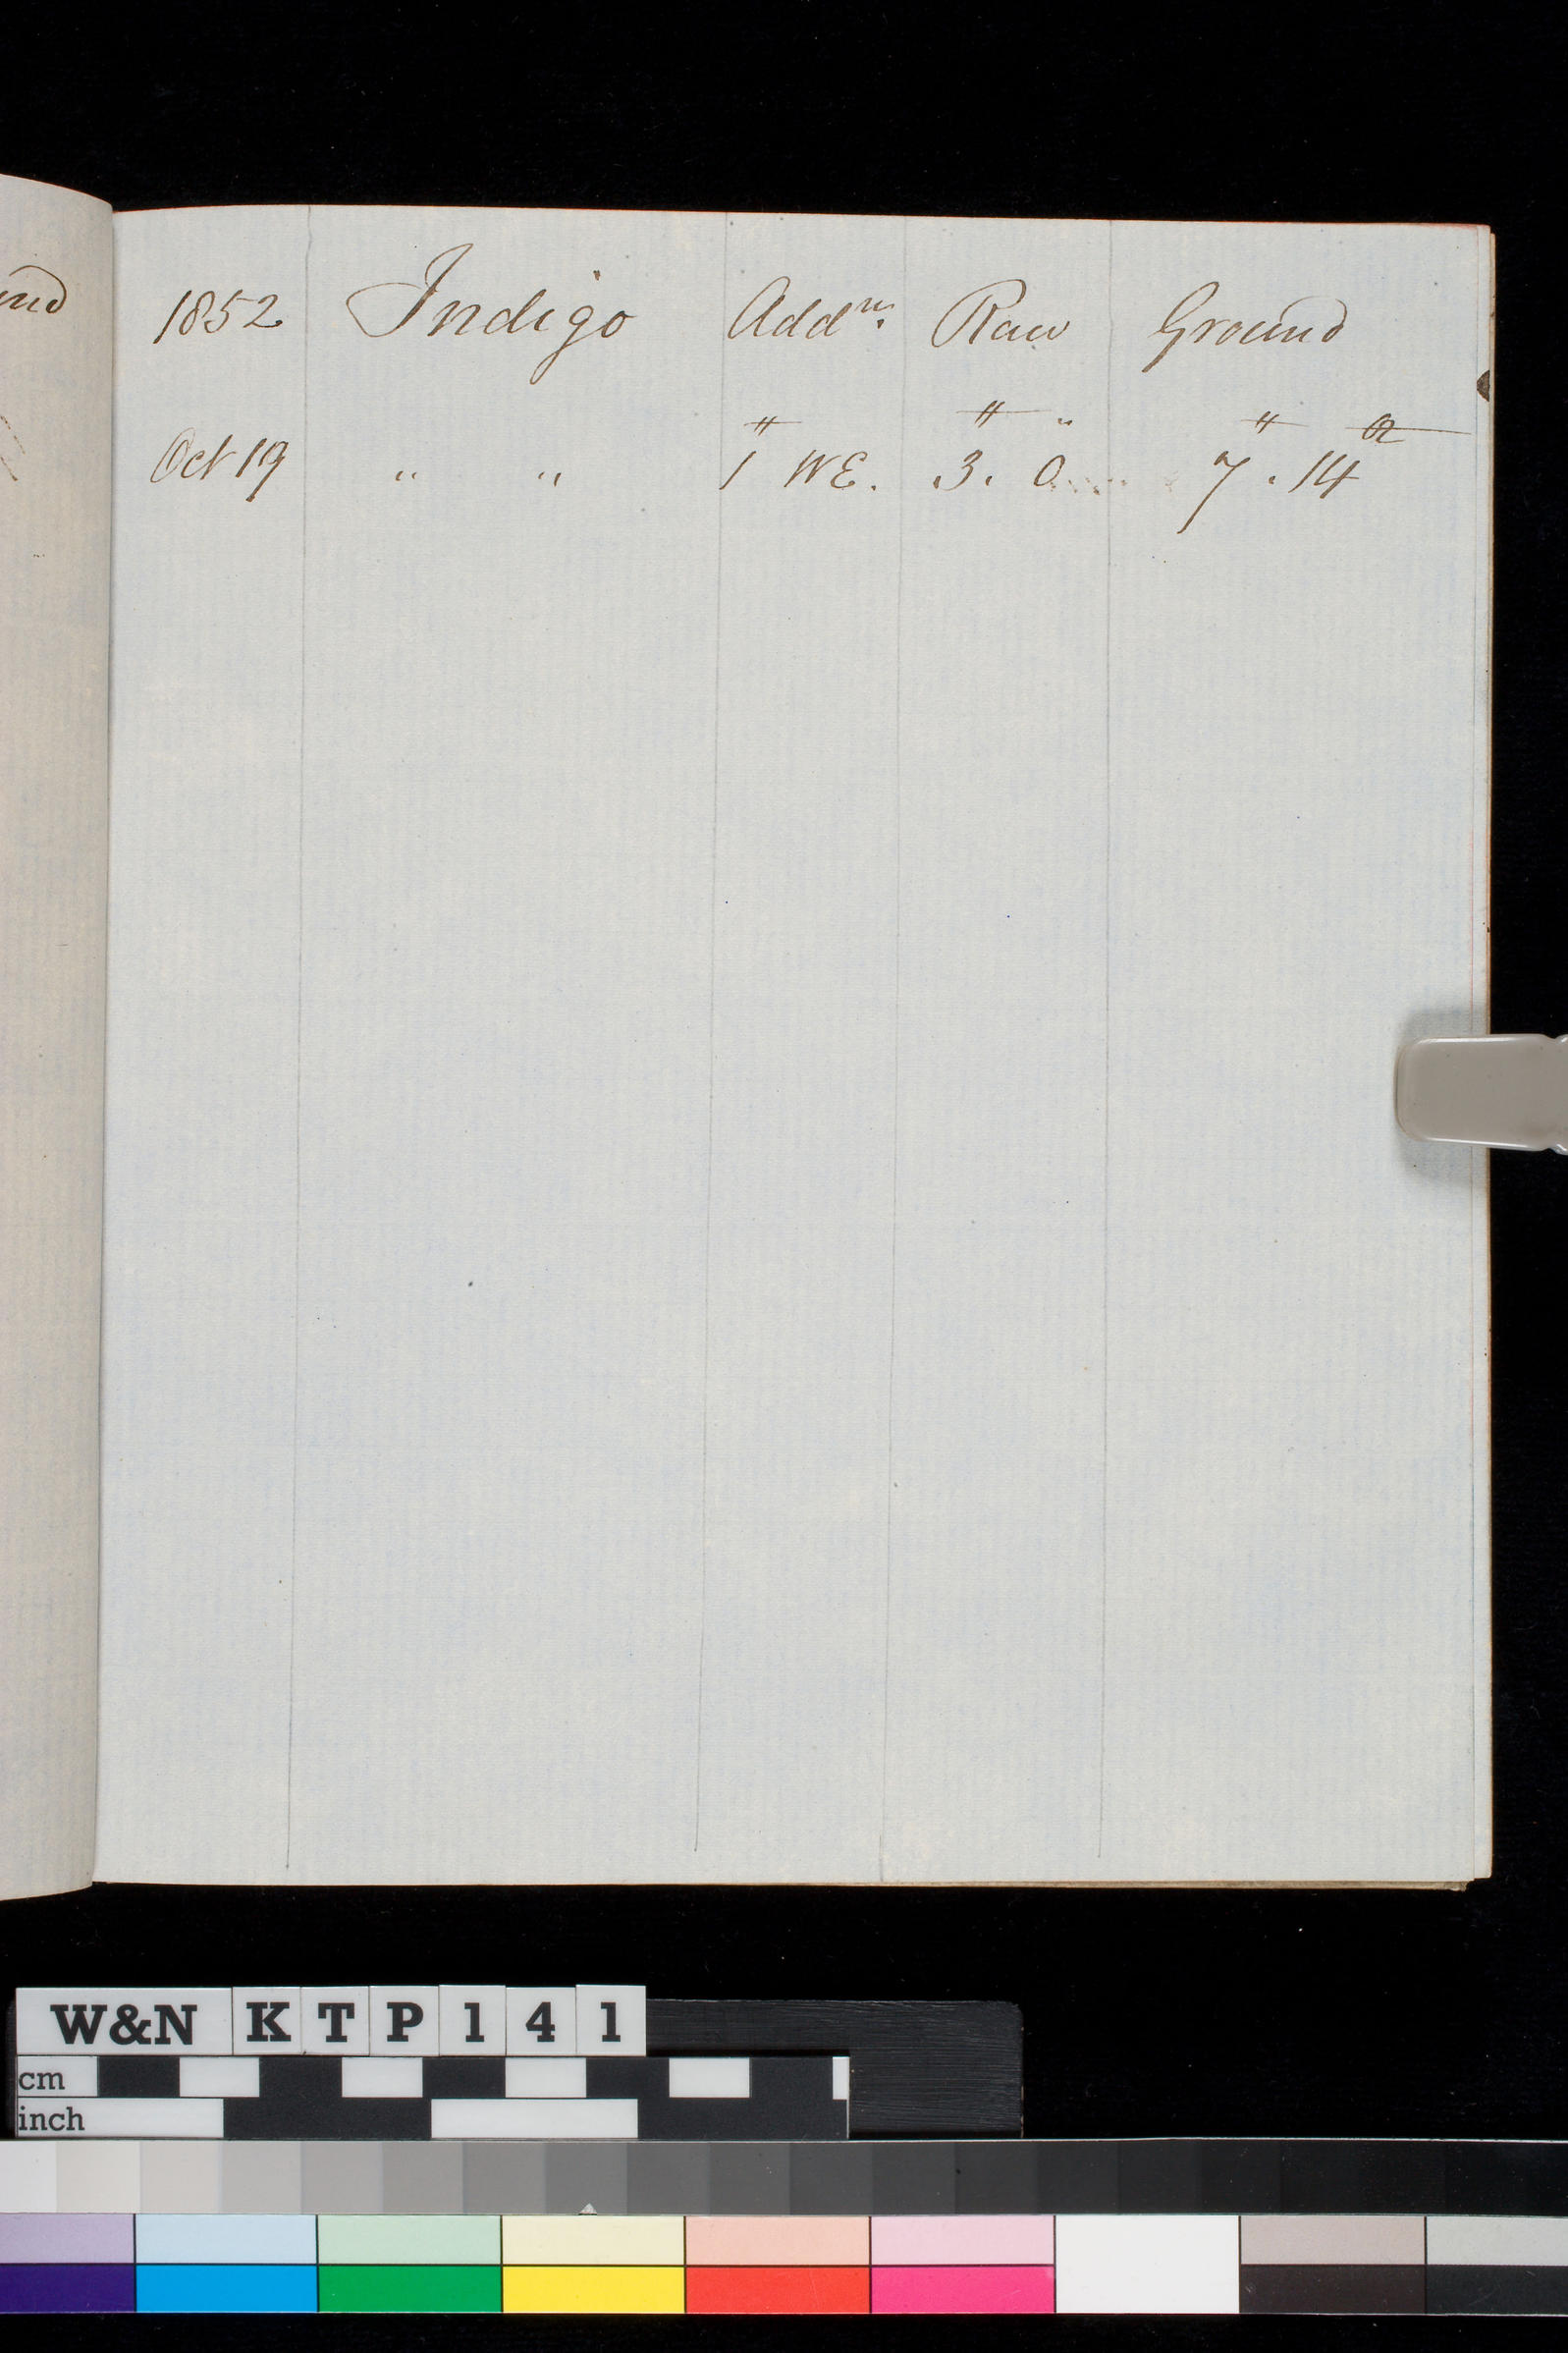 und
1852 Indigo Addns. Raw Ground
Oct 19 " " 1 WE. 3. 0 " 7. 14 oz
W&N KTP141
cm
inch